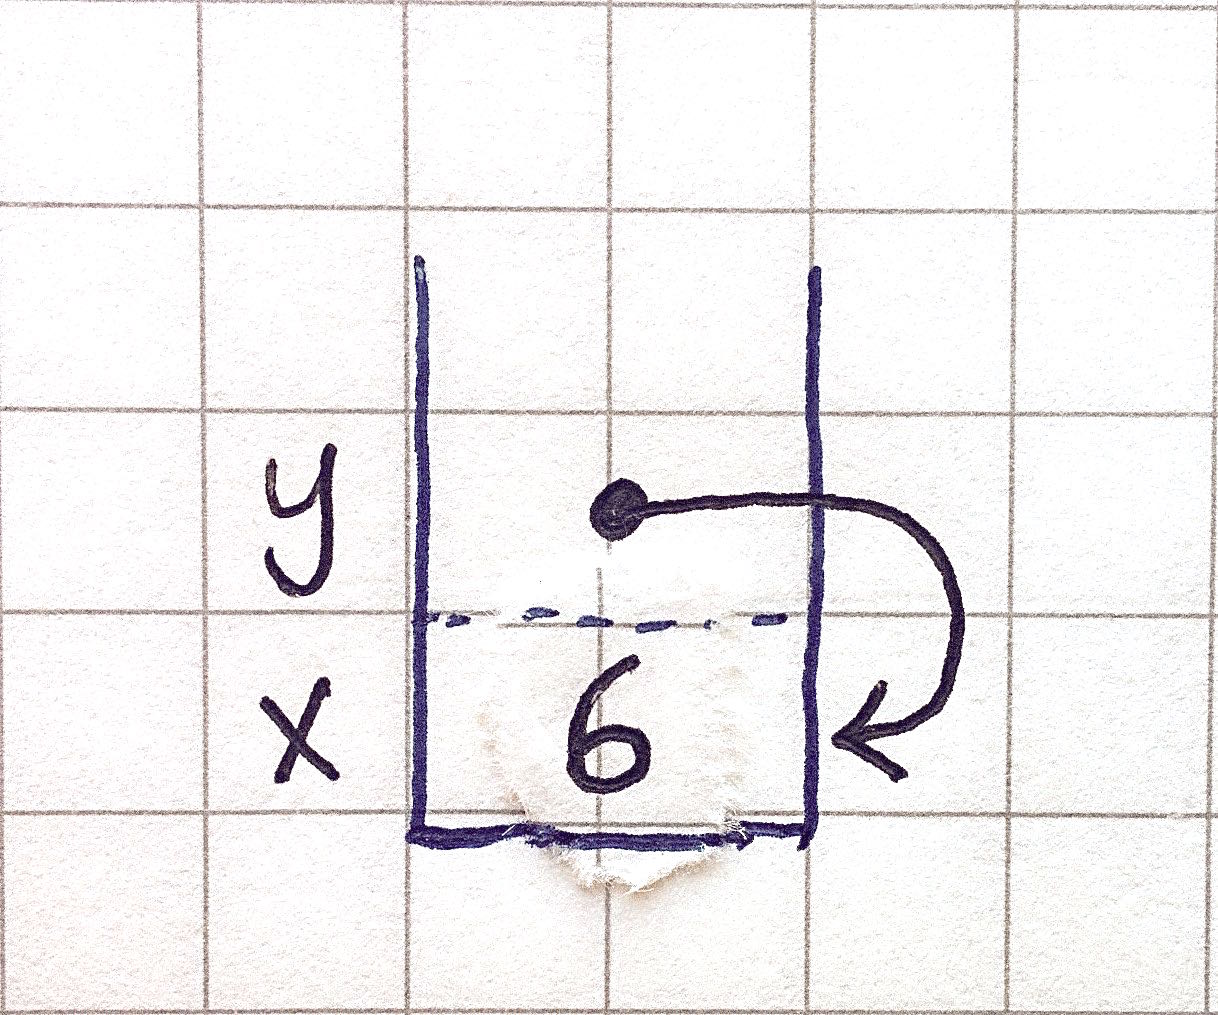 y
x 6